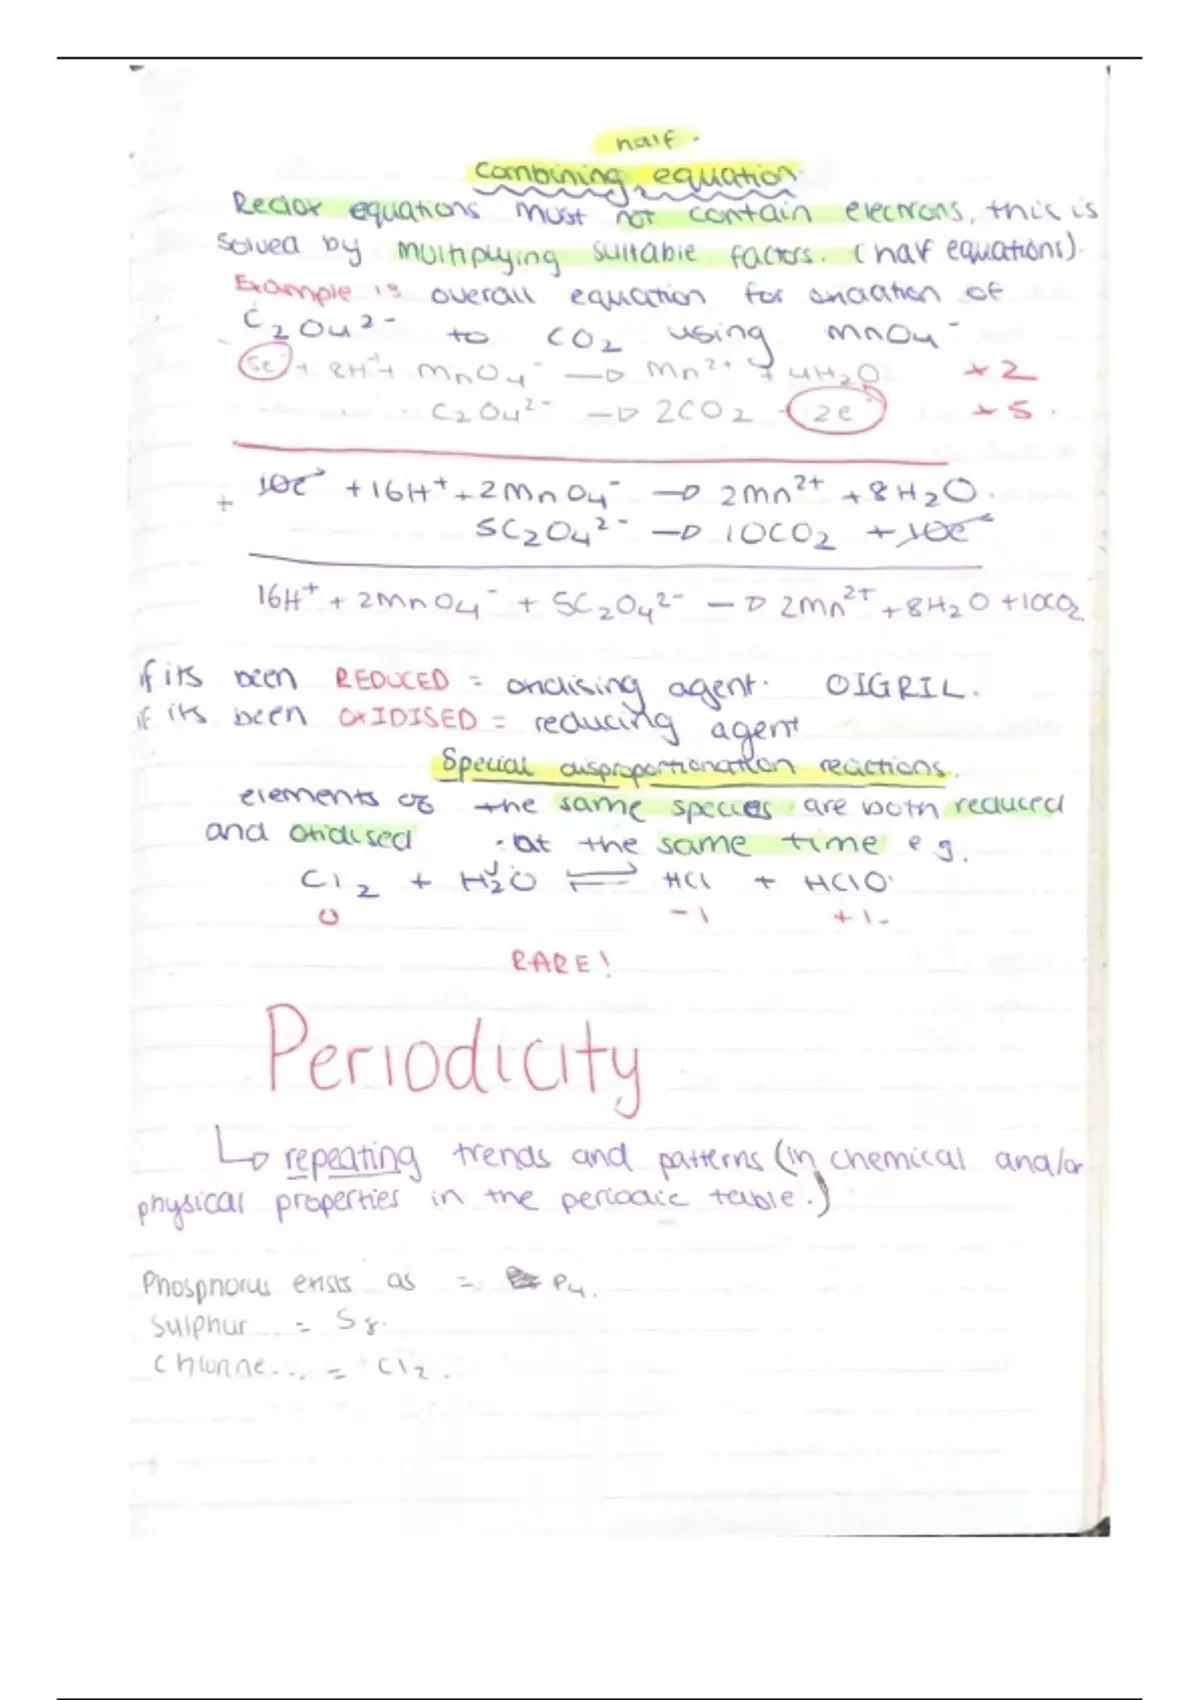 half.
Combining equation.
Redox equations must not contain electrons, this is
solved by multiplying suitable factors. (half equations).
Example is overall equation for oxidation of
C₂O₄²⁻ to CO₂ using MnO₄⁻
5e⁻ + 8H⁺ + MnO₄⁻ → Mn²⁺ + 4H₂O ×2
C₂O₄²⁻ → 2CO₂ 2e⁻ ×5.
+ 10e⁻ + 16H⁺ + 2MnO₄⁻ → 2Mn²⁺ + 8H₂O.
5C₂O₄²⁻ → 10CO₂ + 10e⁻
16H⁺ + 2MnO₄⁻ + 5C₂O₄²⁻ → 2Mn²⁺ + 8H₂O + 10CO₂
if its been REDUCED = oxidising agent. OIGRIL.
if its been OXIDISED = reducing agent
Special disproportionation reactions.
elements of the same species are both reduced
and oxidised at the same time eg.
Cl₂ + H₂O ⇌ HCl + HClO
0 -1 +1
RARE!
Periodicity
↳ repeating trends and patterns (in chemical and/or
physical properties in the periodic table.)
Phosphorus exists as = P₄.
Sulphur .. = S₈.
Chlorine... = Cl₂.